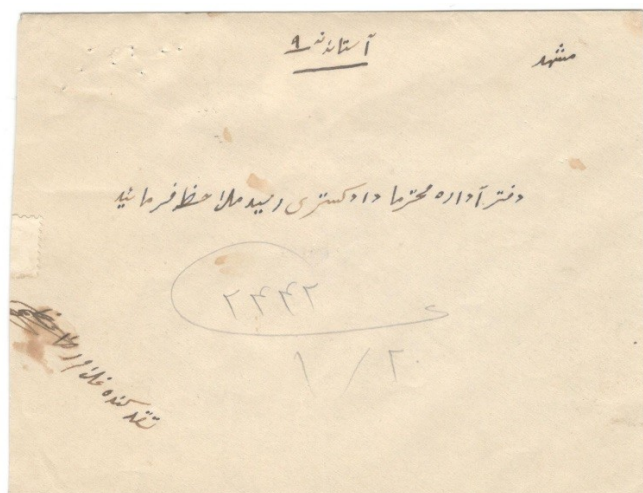 مشهد
آستانه ۹
دفتر آداره محترما دادگستری رسید ملاحظه فرمائید
۲۴۴۲
۱/۲
کننده